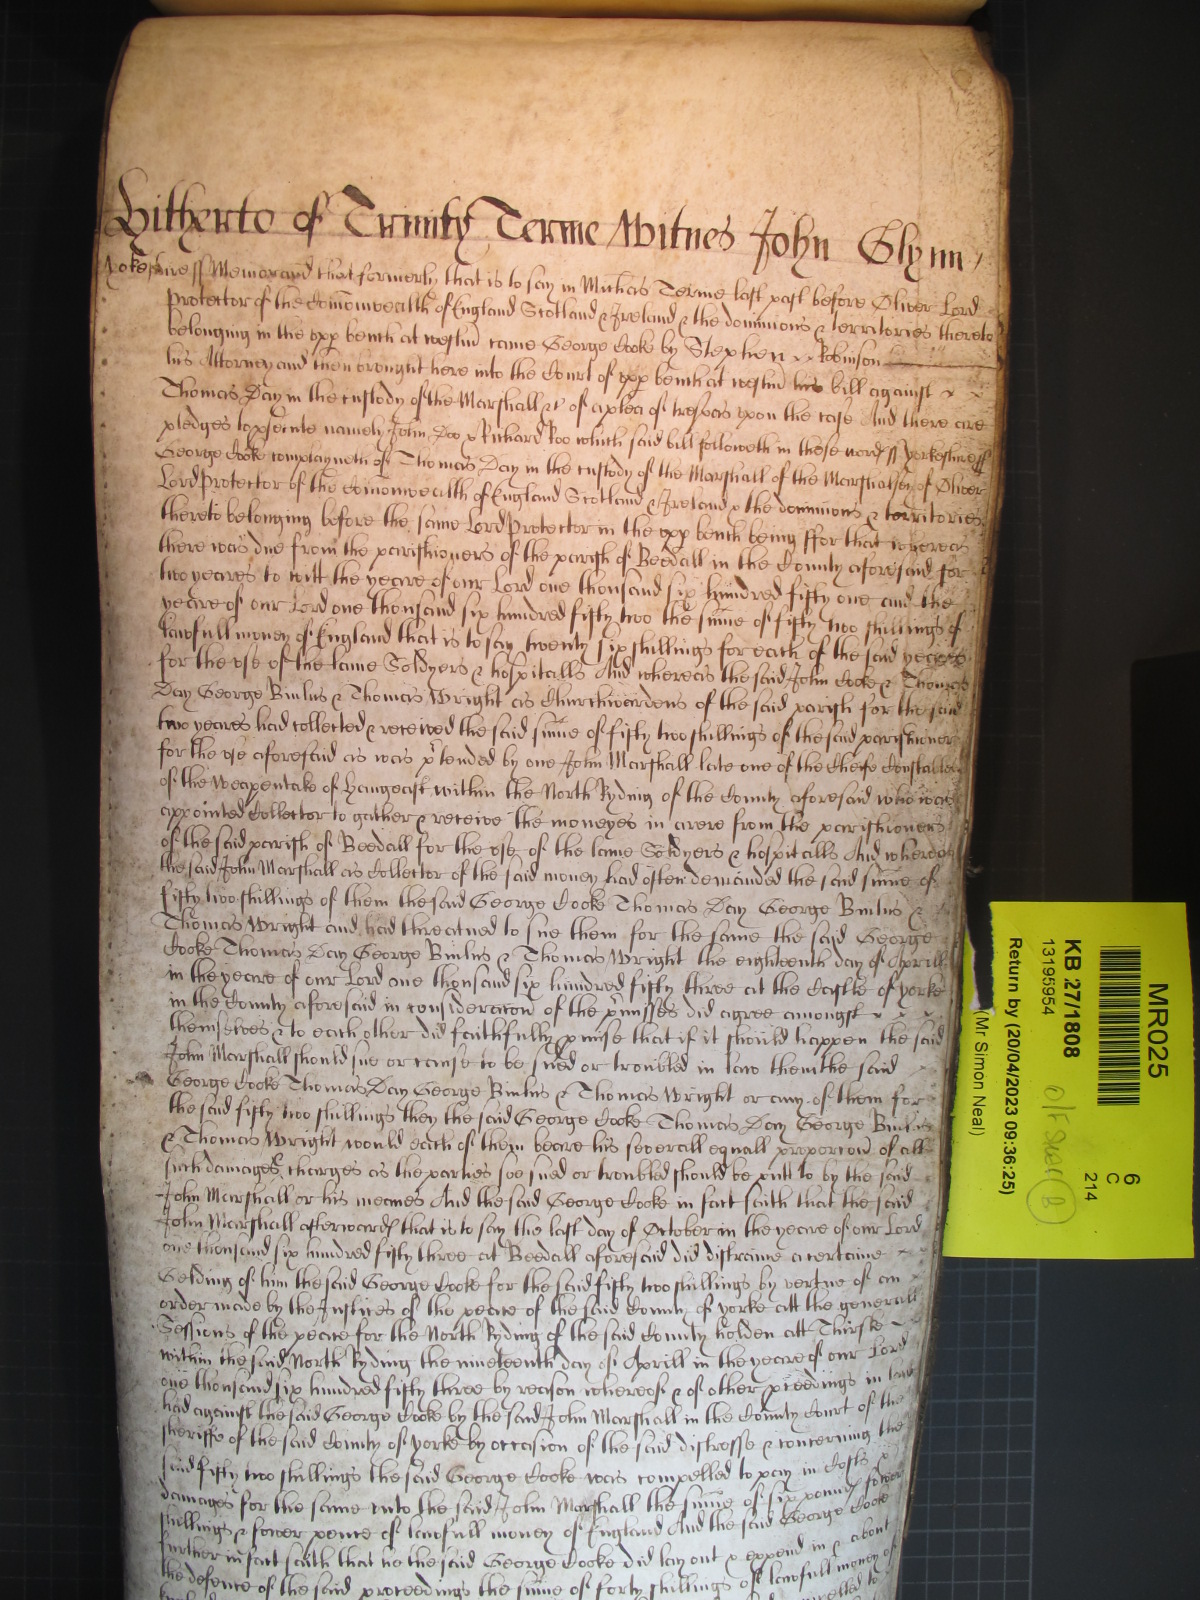 Hitherto of Trinity Terme Witnes John Glynn
Yorkeshire ss Memorand that formerly that is to say in Michās Terme last past before Oliver Lord
Protector of the Com̄onwealth of England Scotland & Ireland & the dominions & territories thereto
belonging in the upp bench at westm̄ came George Cooke by Stephen Robinson
his Attorney and then brought here into the Court of upp bench at westm̄ his bill against
Thomas Day in the custody of the Marshall &c of a plea of trespas upon the case And there are
pledges to psecute namely John Doo & Richard Roo which said bill followeth in these words ss Yorkeshire ss
George Cooke complayneth of Thomas Day in the custody of the Marshall of the Marshalsey of Oliver
Lord Protector of the Com̄onwealth of England Scotland & Ireland & the dominions & territories
thereto belonging before the same Lord Protector in the upp bench being ffor that whereas
there was due from the parishioners of the parish of Beedall in the County aforesaid for
two yeares to witt the yeare of our Lord one thousand six hundred fifty one and the
yeare of our Lord one thousand six hundred fifty two the sum̄e of fifty two shillings of
lawfull money of England that is to say twenty six shillings for each of the said yeares
for the use of the lame Soldyers & hospitalls And whereas the said John Cooke & Thomas
Day George Binlus & Thomas Wright as Churchwardens of the said parish for the said
two yeares had collected & received the said sum̄e of fifty two shillings of the said parishioners
for the use aforesaid as was p̄tended by one John Marshall late one of the Cheife Constables
of the Weapentake of Hangeast within the North Ryding of the County aforesaid who was
appointed Collector to gather & receive the moneyes in arere from the parishioners
of the said parish of Beedall for the use of the lame Soldyers & hospitalls And whereas
the said John Marshall as Collector of the said money had often demanded the said sum̄e of
fifty two shillings of them the said George Cooke Thomas Day George Binlus &
Thomas Wright and had threatned to sue them for the same the said George
Cooke Thomas Day George Binlus & Thomas Wright the eighteenth day of Aprill
in the yeare of our Lord one thousand six hundred fifty three at the Castle of Yorke
in the County aforesaid in consideracon of the p̄misses did agree amongst
themselves & to each other did faithfully pmise that if it should happen the said
John Marshall should sue or cause to be sued or troubled in law them the said
George Cooke Thomas Day George Binlus & Thomas Wright or any of them for
the said fifty two shillings they the said George Cooke Thomas Day George Binlus
& Thomas Wright would each of them beare his severall equall proporcon of all
such damages & charges as the parties soe sued or troubled should be putt to by the said
John Marshall or his meanes And the said George Cooke in fact saith that the said
John Marshall afterwards that is to say the last day of October in the yeare of our Lord
one thousand six hundred fifty three at Beedall aforesaid did distraine a certaine
Gelding of him the said George Cooke for the said fifty two shillings by vertue of an
order made by the Justices of the peace of the said County of Yorke att the generall
Sessions of the peace for the North Ryding of the said County holden att Thirske
within the said North Ryding the nineteenth day of Aprill in the yeare of our Lord
one thousand six hundred fifty three by reason whereof & of other pceedings in law
had against the said George Cooke by the said John Marshall in the County Court of the
sheriffe of the said County of Yorke by occasion of the said distresse & concerning the
said fifty two shillings the said George Cooke was compelled to pay in Costs &
damages for the same unto the said John Marshall the sum̄e of six pounds fower
shillings & fower pence of lawfull money of England And the said George Cooke
further in fact saith that he the said George Cooke did lay out & expend in & about
the defence of the said proceedings the sum̄e of forty shillings of lawfull money of
MR025
6
C
214
KB 27/1808
13195954
Return by (20/04/2023 09:36:25)
(Mr Simon Neal)